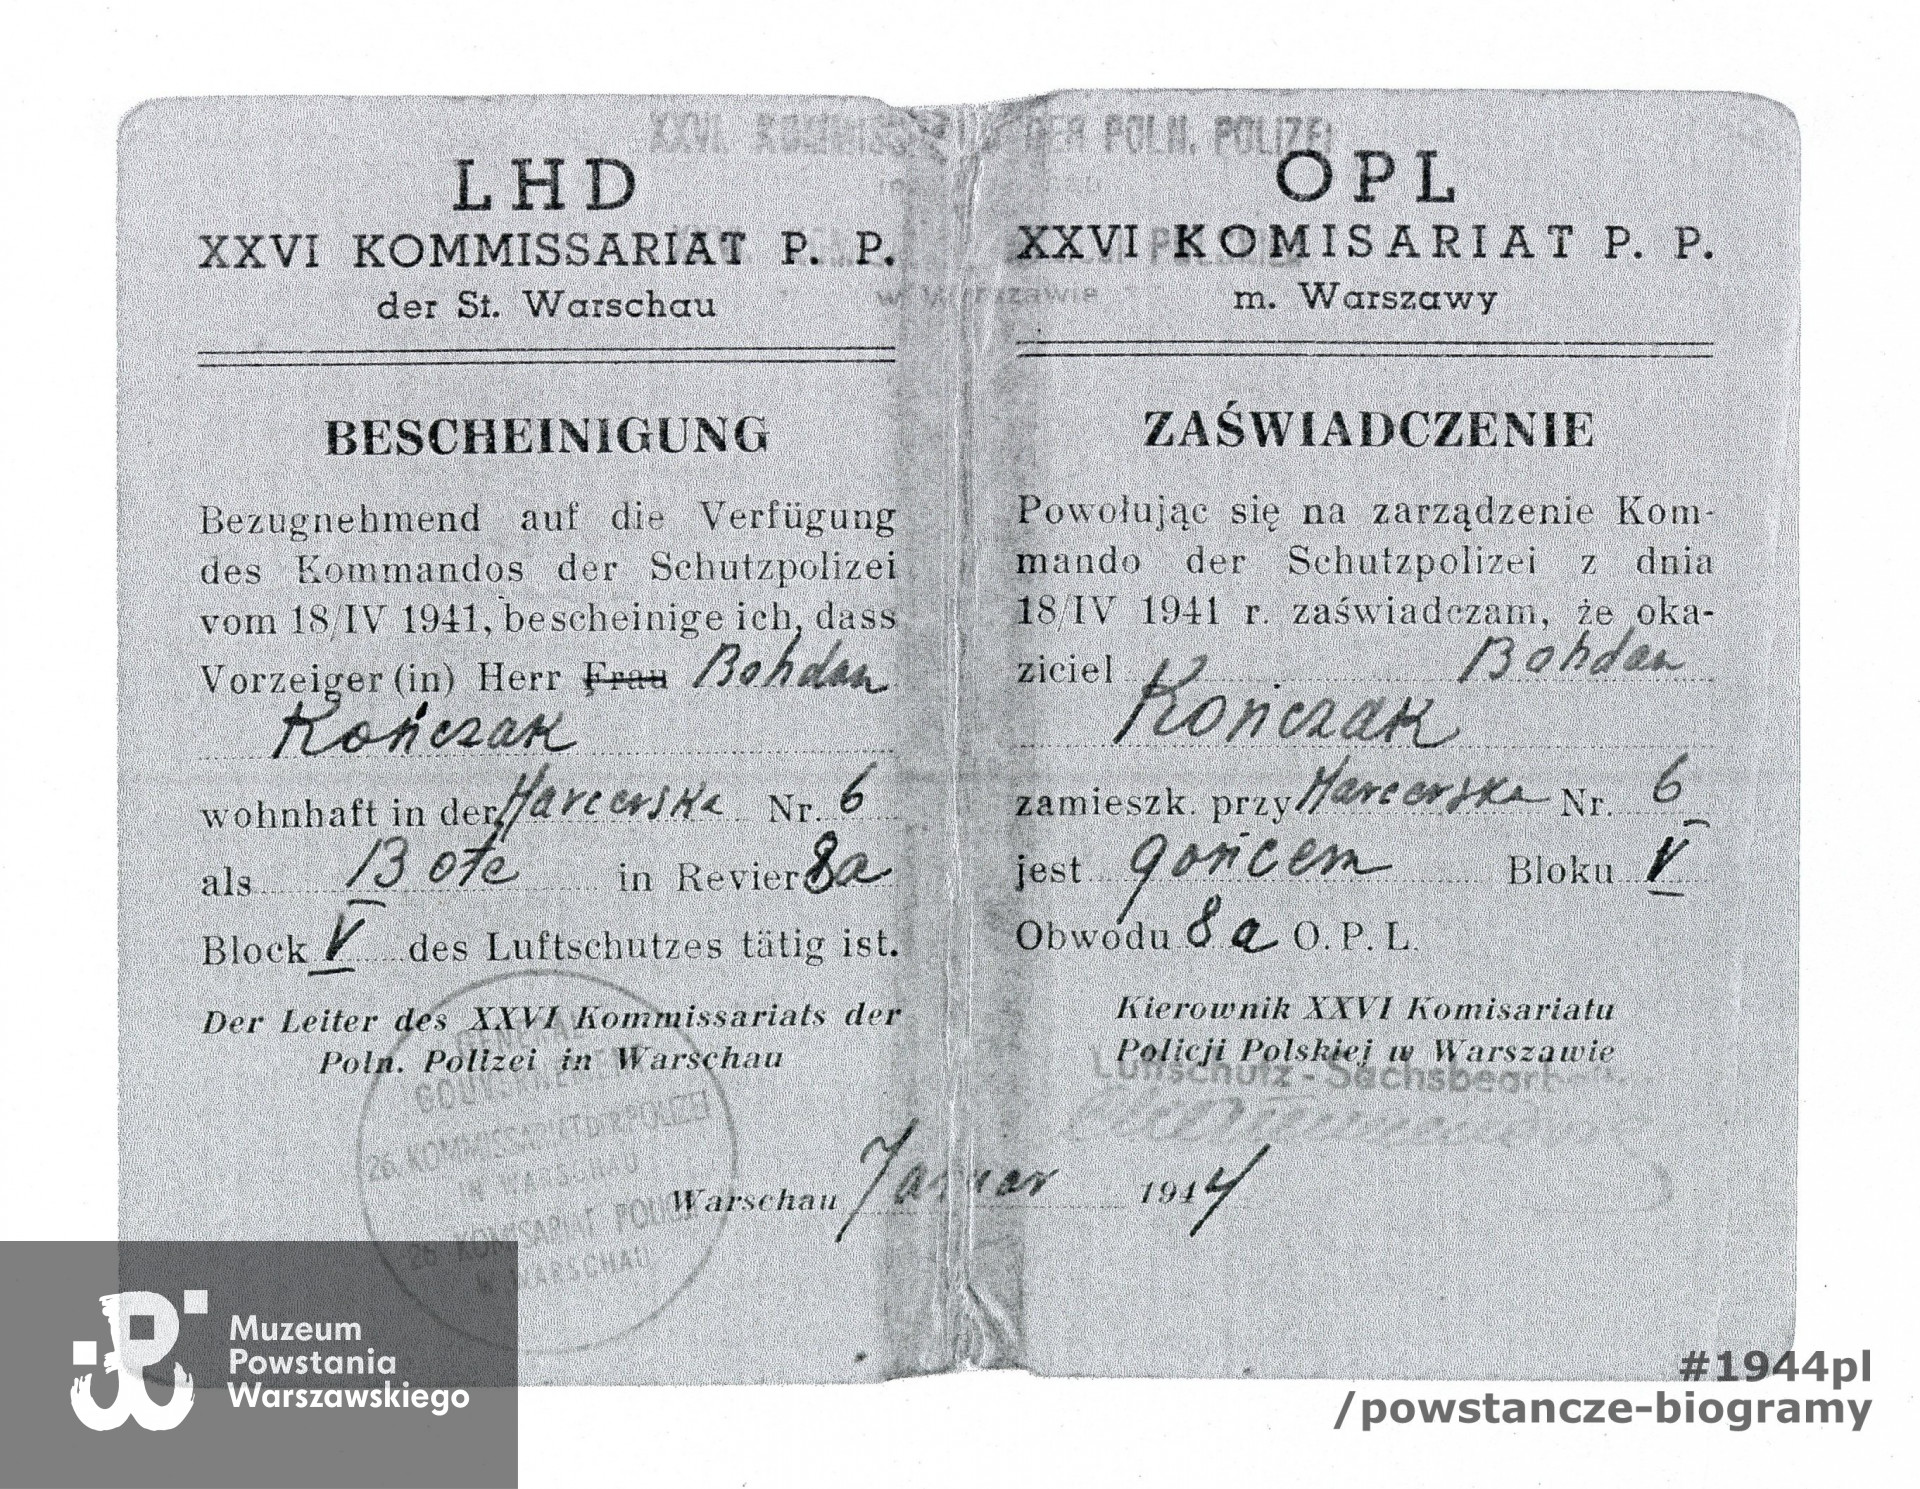 XXVI. KOMMISSARIAT DER POLN. POLIZEI
w Warszawie
LHD
XXVI KOMMISSARIAT P. P.
der St. Warschau
BESCHEINIGUNG
Bezugnehmend auf die Verfügung
des Kommandos der Schutzpolizei
vom 18/IV 1941, bescheinige ich, dass
Vorzeiger (in) Herr Frau Bohdan
Kończak
wohnhaft in der Harcerska Nr. 6
als Bote in Revier 8a
Block V des Luftschutzes tätig ist.
Der Leiter des XXVI Kommissariats der
Poln. Polizei in Warschau
GENERAL
GOUVERNEMENT
26. KOMMISSARIAT DER POLIZEI
IN WARSCHAU
26 KOMISARIAT POLICJI
W WARSCHAU
OPL
XXVI KOMISARIAT P. P.
m. Warszawy
ZAŚWIADCZENIE
Powołując się na zarządzenie Kom-
mando der Schutzpolizei z dnia
18/IV 1941 r. zaświadczam, że oka-
ziciel Bohdan
Kończak
zamieszk. przy Harcerska Nr. 6
jest gońcem Bloku V
Obwodu 8a O. P. L.
Kierownik XXVI Komisariatu
Policji Polskiej w Warszawie
Luftschutz - Sachsbearbeiter
Warschau Januar 1944
Muzeum
Powstania
Warszawskiego
#1944pl
/powstancze-biogramy